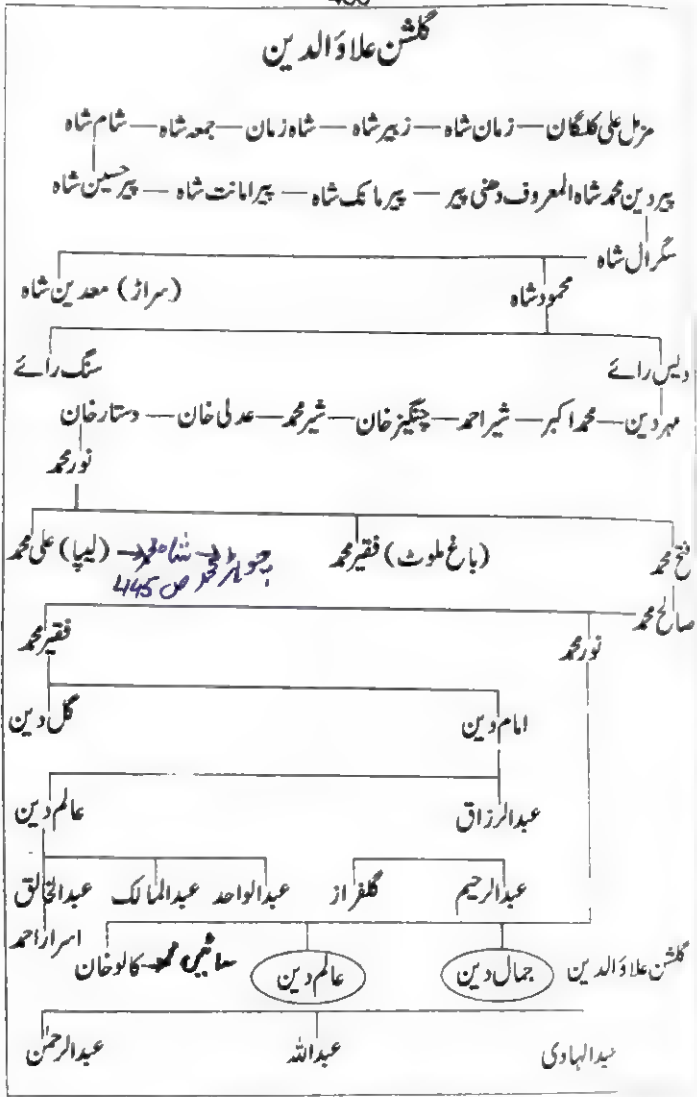 گلشن علاؤالدین
مزمل علی کلگان — زمان شاہ — زبیر شاہ — شاہ زمان — جمعہ شاہ — شام شاہ
پیر دین محمد شاہ المعروف دھنی پیر — پیر مانک شاہ — پیر امانت شاہ — پیر حسین شاہ
سگرال شاہ
محمود شاہ (سراڑ) معدین شاہ
دیس رائے سنگ رائے
مہر دین — محمد اکبر — شیر احمد — چنگیز خان — شیر محمد — عدلی خان — دستار خان
نور محمد
فتح محمد (باغ ملوٹ) فقیر محمد (لیپا) علی محمد
ص 445
صالح محمد نور محمد فقیر محمد
امام دین گل دین
عبدالرزاق عالم دین
عبدالرحیم گلفراز عبدالواحد عبدالمالک عبدالخالق
اسرار احمد
گلشن علاؤالدین جمال دین عالم دین کالو خان
عبدالہادی عبداللہ عبدالرحمٰن